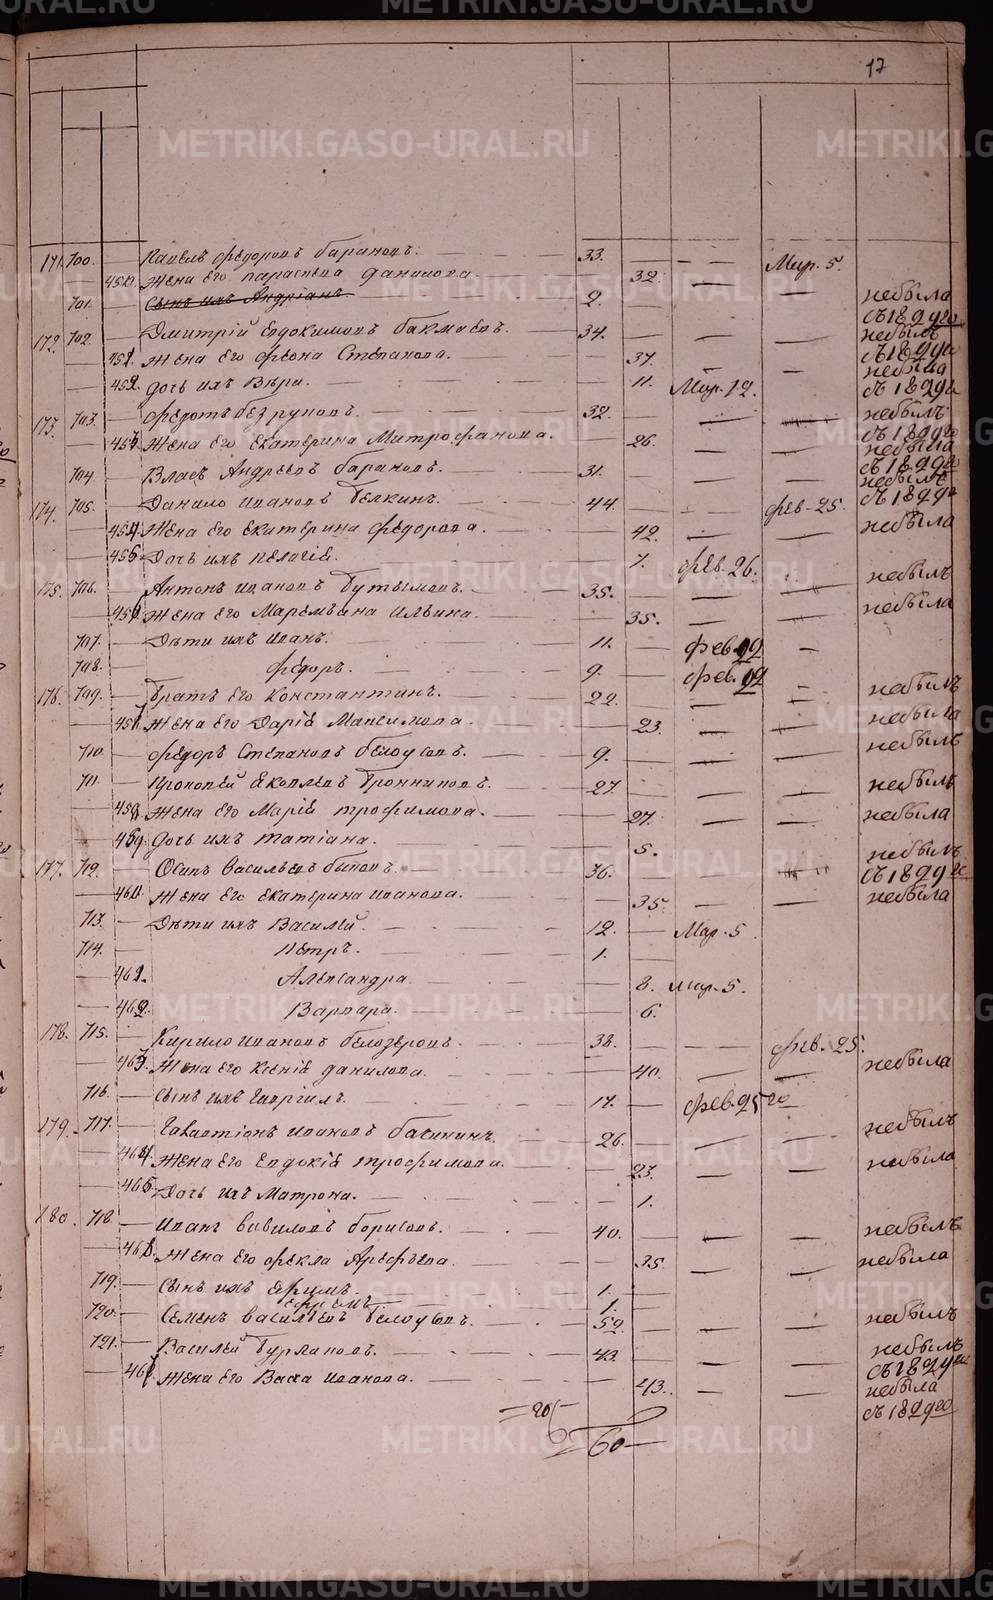 17
171. 700. — Павелъ Федоровъ Барановъ. 33. — — Мар. 5.
450 Жена его Параскева Данилова. 32. — — небыла
701. — Сынъ ихъ Андріанъ. 2. съ 1829 го
172. 702. — Дмитрій Евдокимовъ 34. — — небылъ съ 1829 го
451. Жена его Степанова. 37. — — небыла
452. дочь ихъ Вѣра. 11. Мар. 12. съ 1829 го
173. 703. — Федотъ 32. — небылъ съ 1829 го
453 Жена его Екатерина Митрофанова. 26. — — небыла съ 1829 го
704. — Власъ Андреевъ Барановъ. 31. — — небылъ съ 1829 го
174. 705. — Данило Ивановъ Белкинъ. 44. — — фев. 25.
454 Жена его Екатерина Федорова. 42. — — небыла
455 Дочь ихъ Пелагіе. 7. фев. 26.
175. 706. — Антонъ Ивановъ 35. — — небылъ
456 Жена его Маремьяна Ильина. 35. — — небыла
707. — Дѣти ихъ Иванъ. 11. — фев. 19 —
708. — Федоръ. 9. — фев. 19
176. 709. — Братъ его Константинъ. 22. — — небылъ
457 Жена его Дарія Максимова. 23. — — небыла
710. — Федоръ Степановъ Белоусовъ. 9. — — небылъ
711. — Прокопей Яковлевъ Бронниковъ. 27. — — небылъ
458 Жена его Марія Трофимова. 27. — — небыла
459 дочь ихъ Татіана. 5. — —
177. 712. — Осипъ Васильевъ 36. — небылъ съ 1829 го
460 Жена его Екатерина Иванова. 35. — — небыла
713. — Дѣти ихъ Василей. 12. — Мар. 5.
714. — Петръ. 1. —
461. Александра. 8. Мар. 5.
462. Варвара. 6.
178. 715. — Кирило Ивановъ Белозеровъ. 38. — — фев. 25.
463 Жена его Ксеніе Данилова. 40. — — небыла
716. — Сынъ ихъ Гавріилъ. 17. — фев. 25
179. 717. — Ивановъ 26. — — небылъ
464 Жена его Евдокіе Трофимова. 23. — — небыла
465 Дочь ихъ Матрона. 1.
180. 718. — Иванъ Вавиловъ Борисовъ. 40. — — небылъ
466 Жена его Фекла Арефьева. 35. — — небыла
719. — Сынъ ихъ 1.
Ефремъ 1.
720. — Семенъ Васильевъ Белоусовъ. 52. — — — небылъ
721. — Василей 43. — — — небылъ съ 1829 го
467 Жена его Васса Иванова. 43. — — небыла съ 1829 го
=20=
60
METRIKI.GASO-URAL.RU